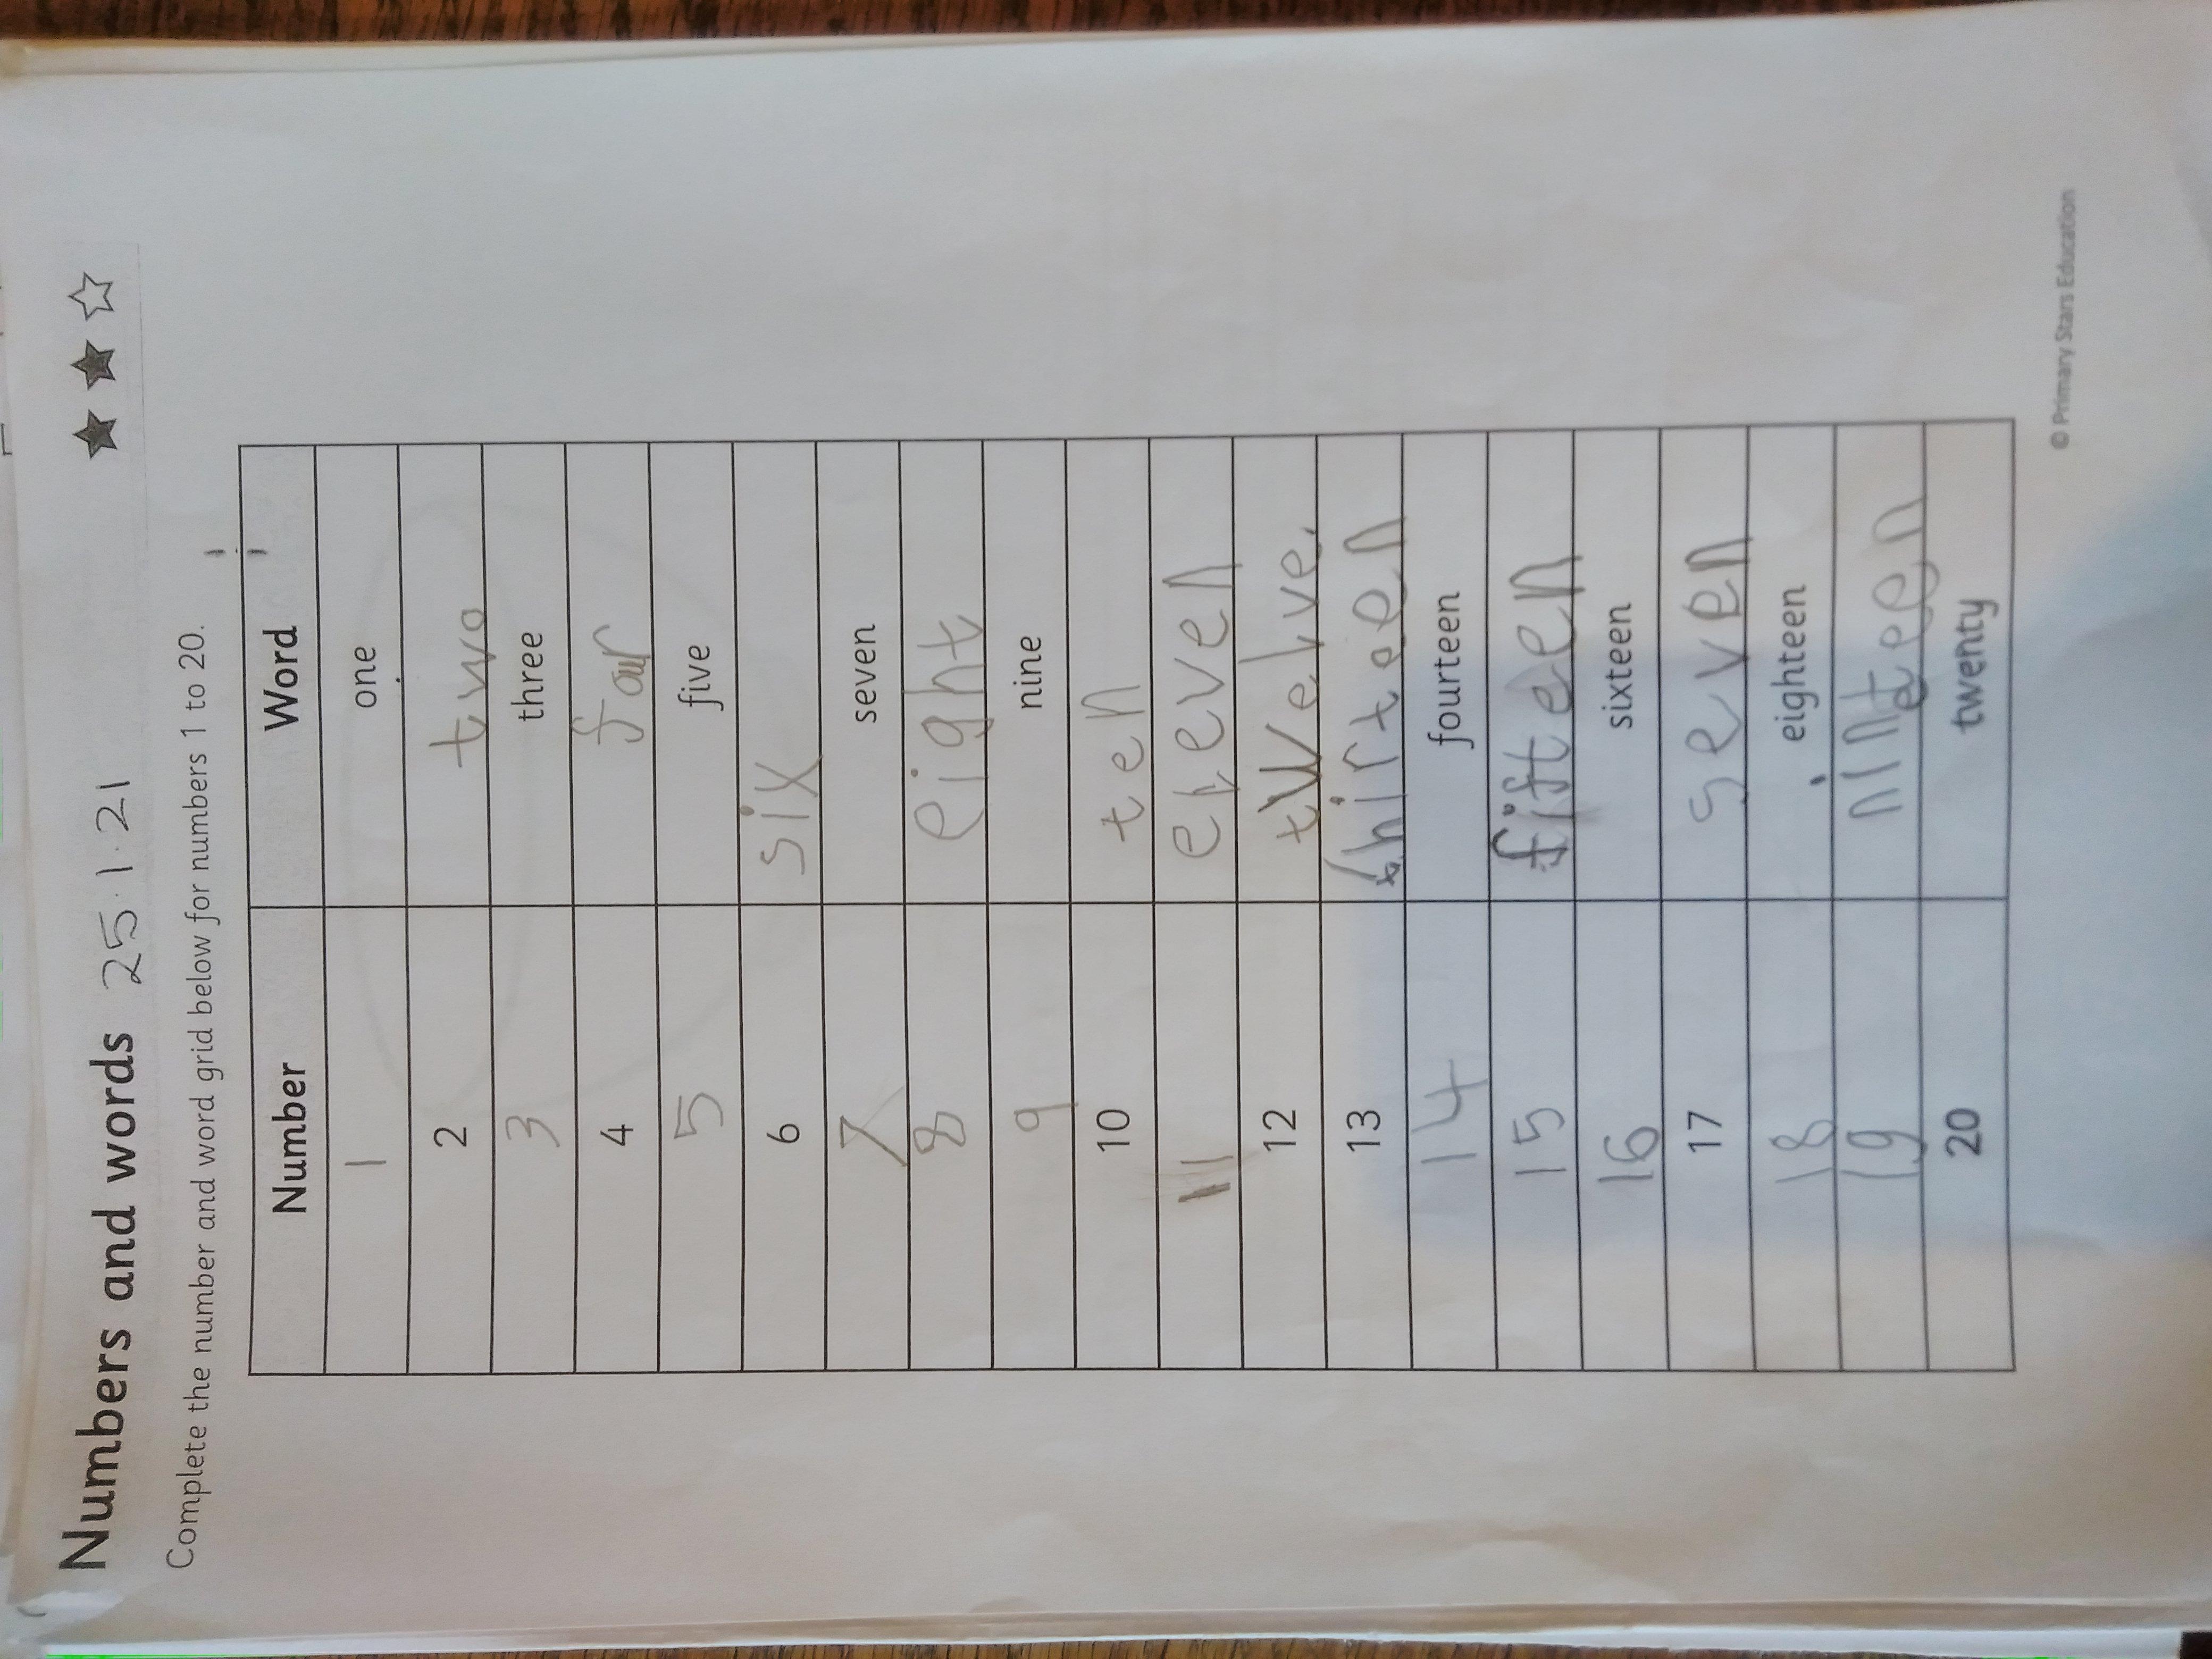 Numbers and words 25.1.21
Complete the number and word grid below for numbers 1 to 20.
Number Word
1 one
2 two
3 three
4 four
5 five
6 six
7 seven
8 eight
9 nine
10 ten
11 eleven
12 twelve
13 thirteen
14 fourteen
15 fifteen
16 sixteen
17 seven
18 eighteen
19 ninteen
20 twenty
© Primary Stars Education